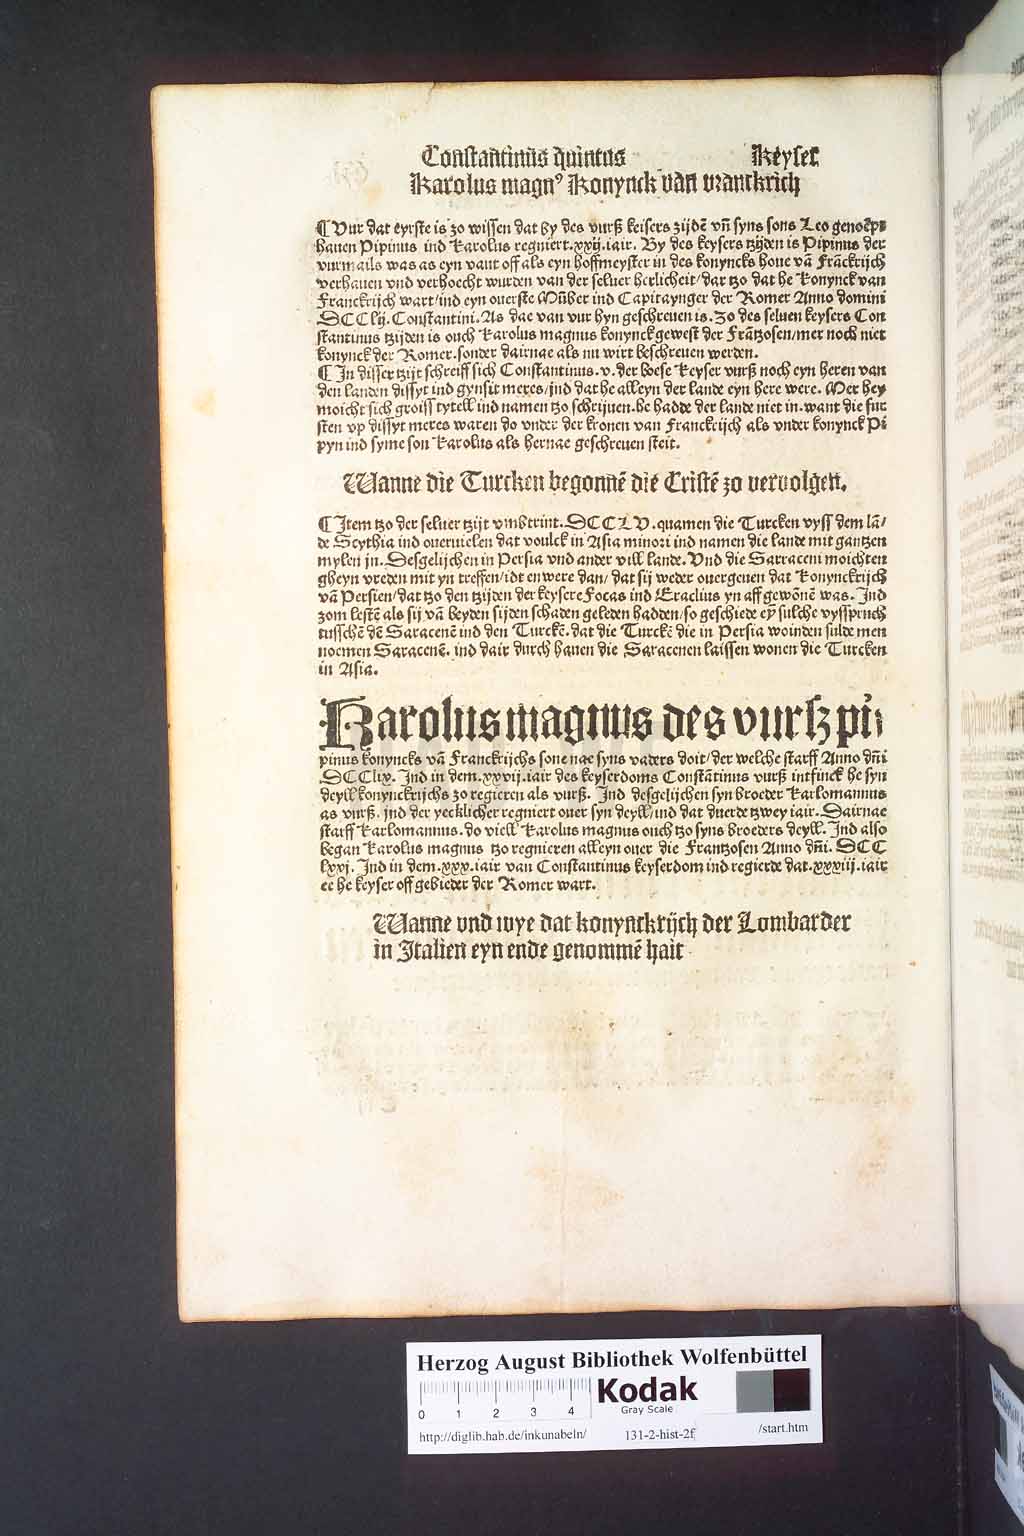 Constantinus quintus Keyser
Karolus magnꝰ Konynck van vranckrich
¶ Vur dat eyrste is zo wissen dat by des vurß keisers zijdē vñ syns sons Leo genoēpt
hauen Pipinus ind Karolus regniert.xxij.iair. By des keysers tzijden is Pipinus der
vurmails was as eyn vaut off als eyn hoffmeyster in des konyncks houe vā Frāckrijch
verhauen vnd verhoecht wurden van der seluer herlicheit/dar tzo dat he Konynck van
Franckrijch wart/ind eyn ouerste Mūber ind Capitaynger der Romer Anno domini
DCClij. Constantini. As dae van vur hyn geschreuen is. Zo des seluen keysers Con
stantinus tzijden is ouch Karolus magnus konynck gewest der Frātzosen/mer noch niet
konynck der Romer. sonder dairnae als nu wirt beschreuen werden.
¶ In disser tzijt schreiff sich Constantinus.v. der boese Keyser vurß noch eyn heren van
den landen dissyt ind gynsit meres/ind dat he alleyn der lande eyn here were. Mer hey
moicht sich groiss tytell ind namen tzo schrijuen. he hadde der lande niet in. want die fur
sten vp dissyt meres waren do vnder der kronen van Franckrijch als vnder konynck Pi
pyn ind syme son Karolus als hernae geschreuen steit.
Wanne die Turcken begonnē die Cristē zo vervolgen.
¶ Item tzo der seluer tzijt vmbtrint. DCCLV. quamen die Turcken vyss dem lā/
de Scythia ind oueruielen dat voulck in Asia minori ind namen die lande mit gantzen
mylen in. Desgelijchen in Persia vnd ander vill lande. Vnd die Sarraceni moichten
gheyn vreden mit yn treffen/idt en were dan/dat sij weder ouergeuen dat Konynckrijch
vā Persien/dat tzo den tzijden der keysere Focas ind Eraclius yn aff gewōnē was. Ind
zom lestē als sij vā beyden sijden schaden geleden hadden/so geschiede eȳ sulche vyssproch
tusschē dē Saracenē ind den Turckē. dat die Turckē die in Persia woinden sulde men
noemen Saracenē. ind dair durch hauen die Saracenen laissen wonen die Turcken
in Asia.
Karolus magnus des vurß pi
pinus konyncks vā Franckrijchs sone nae syns vaders doit/der welche starff Anno dñi
DCClix. Ind in dem.xxvij.iair des keyserdoms Constātinus vurß intfinck he syn
deyll konynckrijchs zo regieren als vurß. Ind desgelijchen syn broeder Karlomannus
as vurß. ind der yecklicher regniert ouer syn deyll/ind dat duerde tzwey iair. Dairnae
starff Karlomannus. do viell Karolus magnus ouch tzo syns broeders deyll. Ind also
began Karolus magnus tzo regnieren alleyn ouer die Frantzosen Anno dñi. DCC
lxxj. Ind in dem.xxx.iair van Constantinus keyserdom ind regierde dat.xxxiij.iair
ee he keyser off gebieder der Romer wart.
Wanne vnd wye dat konynckrijch der Lombarder
in Italien eyn ende genommē hait
Herzog August Bibliothek Wolfenbüttel
0 1 2 3 4
Kodak
Gray Scale
http://diglib.hab.de/inkunabeln/ 131-2-hist-2f /start.htm